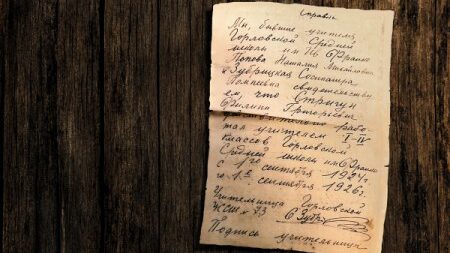 Справка
Мы, бывшие учителя
Горловской Средней
школы им Ив Франко
Попова Наталия Михайловна
и Зубрицкая Сосипатра
свидетельству
ем, что Стригун
Филипп Григорьевич
рабо-
тал учителем I-IV
классов Горловской
Средней школы им Франко
с 1го сентября 1924г.
по 1е сентября 1926г.
Учительница Горловской
№ 73
Подпись учительницы